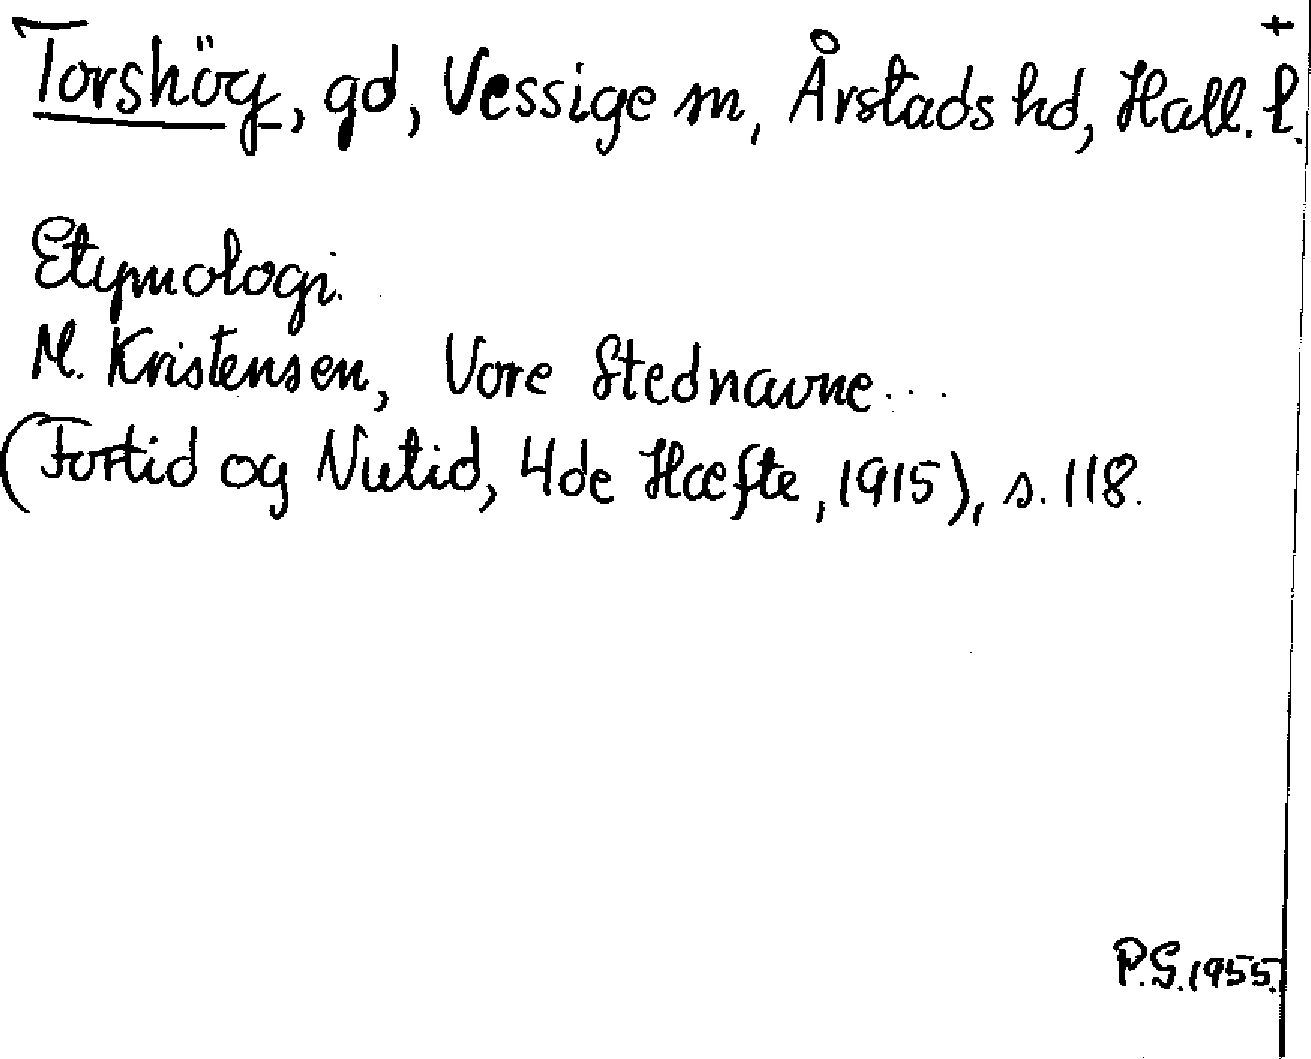 +
Torshög, gd, Vessige sn, Årstads hd, Hall. l.
Etymologi.
M. Kristensen, Vore Stednavne...
(Fortid og Nutid, 4de Hæfte, 1915), s. 118.
P.G. 1955.